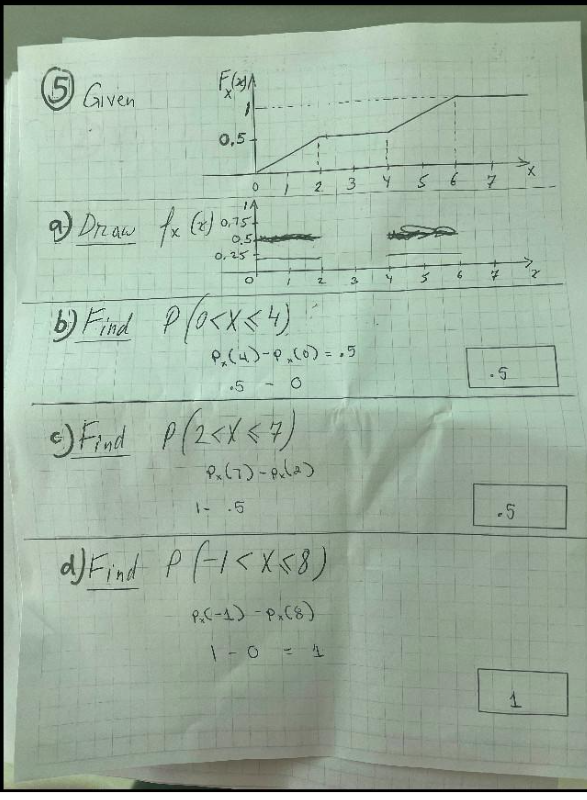 ⑤ Given
Fₓ(x)
1
0.5
0 1 2 3 4 5 6 7 x
a) Draw fₓ(x)
1
0.75
0.5
0.25
0 1 2 3 4 5 6 7 x
b) Find P(0<X≤4)
Pₓ(4)-Pₓ(0) = .5
.5 - 0
.5
c) Find P(2<X≤7)
Pₓ(7)-Pₓ(2)
1- .5
.5
d) Find P(-1<X≤8)
Pₓ(-1) - Pₓ(8)
1 - 0 = 1
1